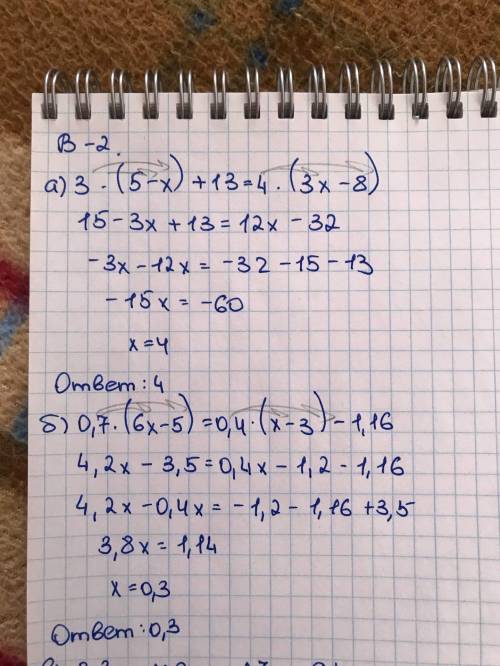 В-2.
а) 3 · (5-x) + 13 = 4 · (3x - 8)
15 - 3x + 13 = 12x - 32
-3x - 12x = -32 - 15 - 13
-15x = -60
x = 4
Ответ: 4
б) 0,7 · (6x - 5) = 0,4 · (x - 3) - 1,16
4,2x - 3,5 = 0,4x - 1,2 - 1,16
4,2x - 0,4x = -1,2 - 1,16 + 3,5
3,8x = 1,14
x = 0,3
Ответ: 0,3